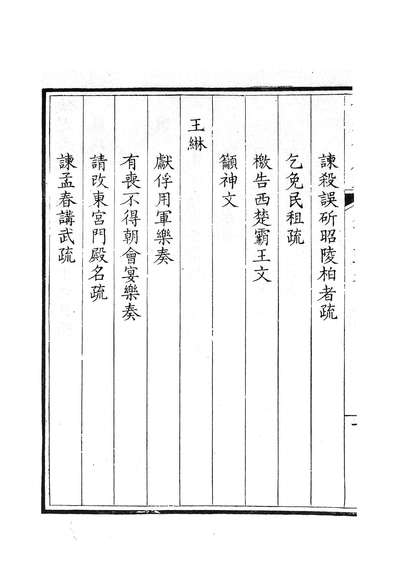 諫殺誤斫昭陵柏者疏
乞免民租疏
檄告西楚霸王文
籲神文
王綝
獻俘用軍樂奏
有喪不得朝會宴樂奏
請改東宮門殿名疏
諫孟春講武疏